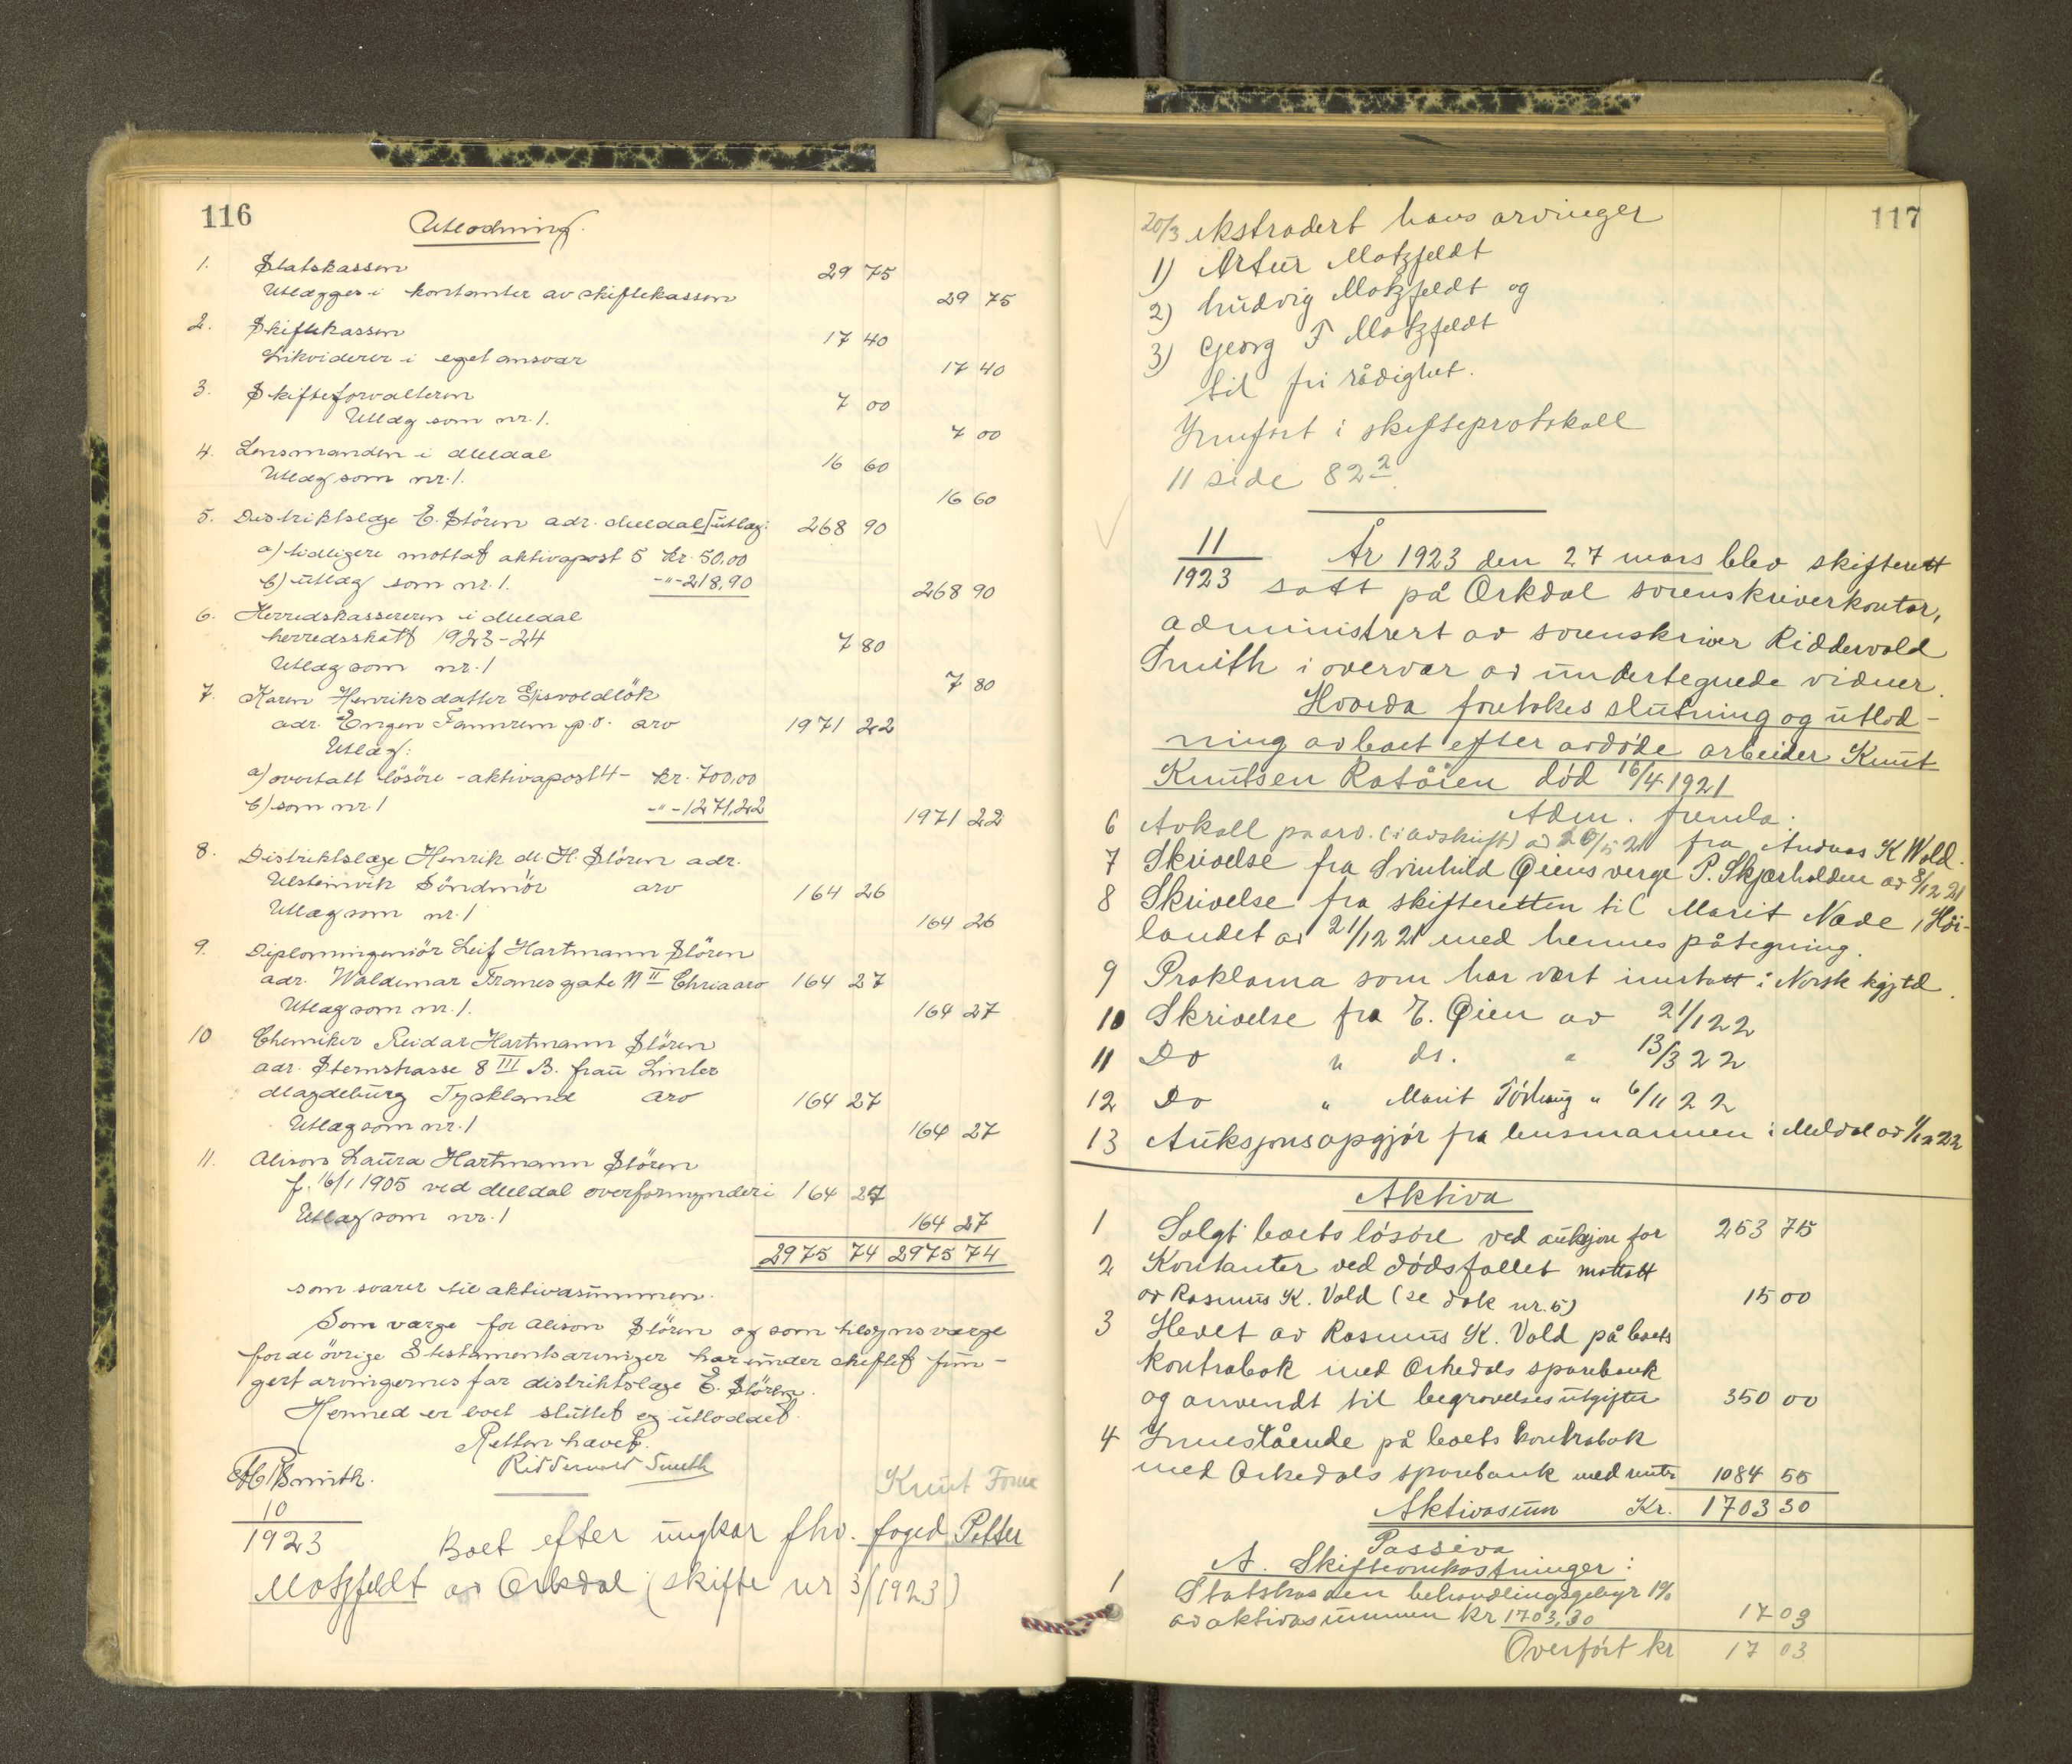 116
Utlodning.
1. Statskassen 29 75
Utlægges i kontanter av skiftekassen 29 75
2. Skiftekassen 17 40
Likviderer i eget ansvar 17 40
3. Skifteforvalteren 7 00
Utlæg som nr. 1. 7 00
4. Lensmanden i Meldal 16 60
Utlæg som nr. 1. 16 60
5. Distriktslæge E. Stören adr. Meldal utlæg: 268 90
a) tidligere mottat aktivapost 5 kr. 50,00
b) utlæg som nr. 1. -"- 218,90 268 90
6. Herredskassereren i Meldal
herredsskatt 1923-24 7 80
Utlæg som nr. 1 7 80
7. Karen Henriksdatter
adr. Engen Fannrem p.o. arv 1971 22
Utlæg:
a) overtatt lösöre - aktivapost 4 - kr. 700,00
b) som nr. 1 -"- 1271,22 1971 22
8. Distriktslæge Henrik M. H. Stören adr.
Ulsteinvik Söndmör arv 164 26
Utlæg som nr. 1 164 26
9. Diplomingeniör Leif Hartmann Stören
adr. Waldemar Thranes gate 11 II Chria arv 164 27
Utlæg som nr. 1. 164 27
10 Chemiker Reidar Hartmann Stören
adr. Sternstrasse 8 III B. frau
Magdeburg Tyskland arv 164 27
Utlæg som nr. 1 164 27
11. Alison Laura Hartmann Stören
f. 16/1 1905 ved Meldal overformynderi 164 27
Utlæg som nr. 1 164 27
2975 74 2975 74
som svarer til aktivasummen.
Som værge for Alison Stören og som tilsynsværge
for de övrige 3 testamentsarvinger har under skiftet fun-
gert arvingernes far distriktslæge E. Stören.
Hermed er boet sluttet og utloddet.
Retten hævet.
Ridderwold Smith
Smith. Knut
10
1923
Boet efter ungkar fhv. foged Petter
Motzfeldt av Orkdal (skifte nr 3/1923)
117
20/3 ekstradert hans arvinger
1) Artur Motzfeldt
2) Ludvig Motzfeldt og
3) Georg F Motzfeldt
til fri rådighet.
Innført i skifteprotokoll
11 side 82 2.
11
1923
År 1923 den 27 mars blev skifterett
satt på Orkdal sorenskriverkontor,
administrert av sorenskriver Ridderwold
Smith i overvær av undertegnede vidner.
Hvorda foretokes slutning og utlod-
ning av boet efter avdøde arbeider Knut
Knutsen Ratåien død 16/4 1921
Adm. fremla:
6 Avkall på arv. (i avskrift) av 20/5 21 fra K Wold.
7 Skrivelse fra Øiens verge P. Skjærholden av 8/12 21
8 Skrivelse fra skifteretten til Marit Næde i Høi-
landet av 21/12 21 med hennes påtegning.
9 Proklama som har vært innstatt i Norsk kgjtd.
10 Skrivelse fra E. Øien av 21/1 22
11 Do " ds. " 13/3 22
12 Do " Marit " 6/11 22
13 Auksjonsopgjör fra lensmannen i Meldal av 1/12 22
Aktiva
1 Solgt boets lösöre ved auksjon for 253 75
2 Kontanter ved dödsfallet mottatt
av Rasmus K. Vold (se dok nr. 5) 15 00
3 Hevet av Rasmus K. Vold på boets
kontrabok med Orkedals sparebank
og anvendt til begravelsesutgifter 350 00
4 Innestående på boets kontrabok
med Orkedals sparebank med renter 1084 55
Aktivasum Kr. 1703 30
Passiva
A. Skifteomkostninger:
1 Statskassen behandlingsgebyr 1%
av aktivasummen kr 1703,30 17 03
Overfört kr 17 03